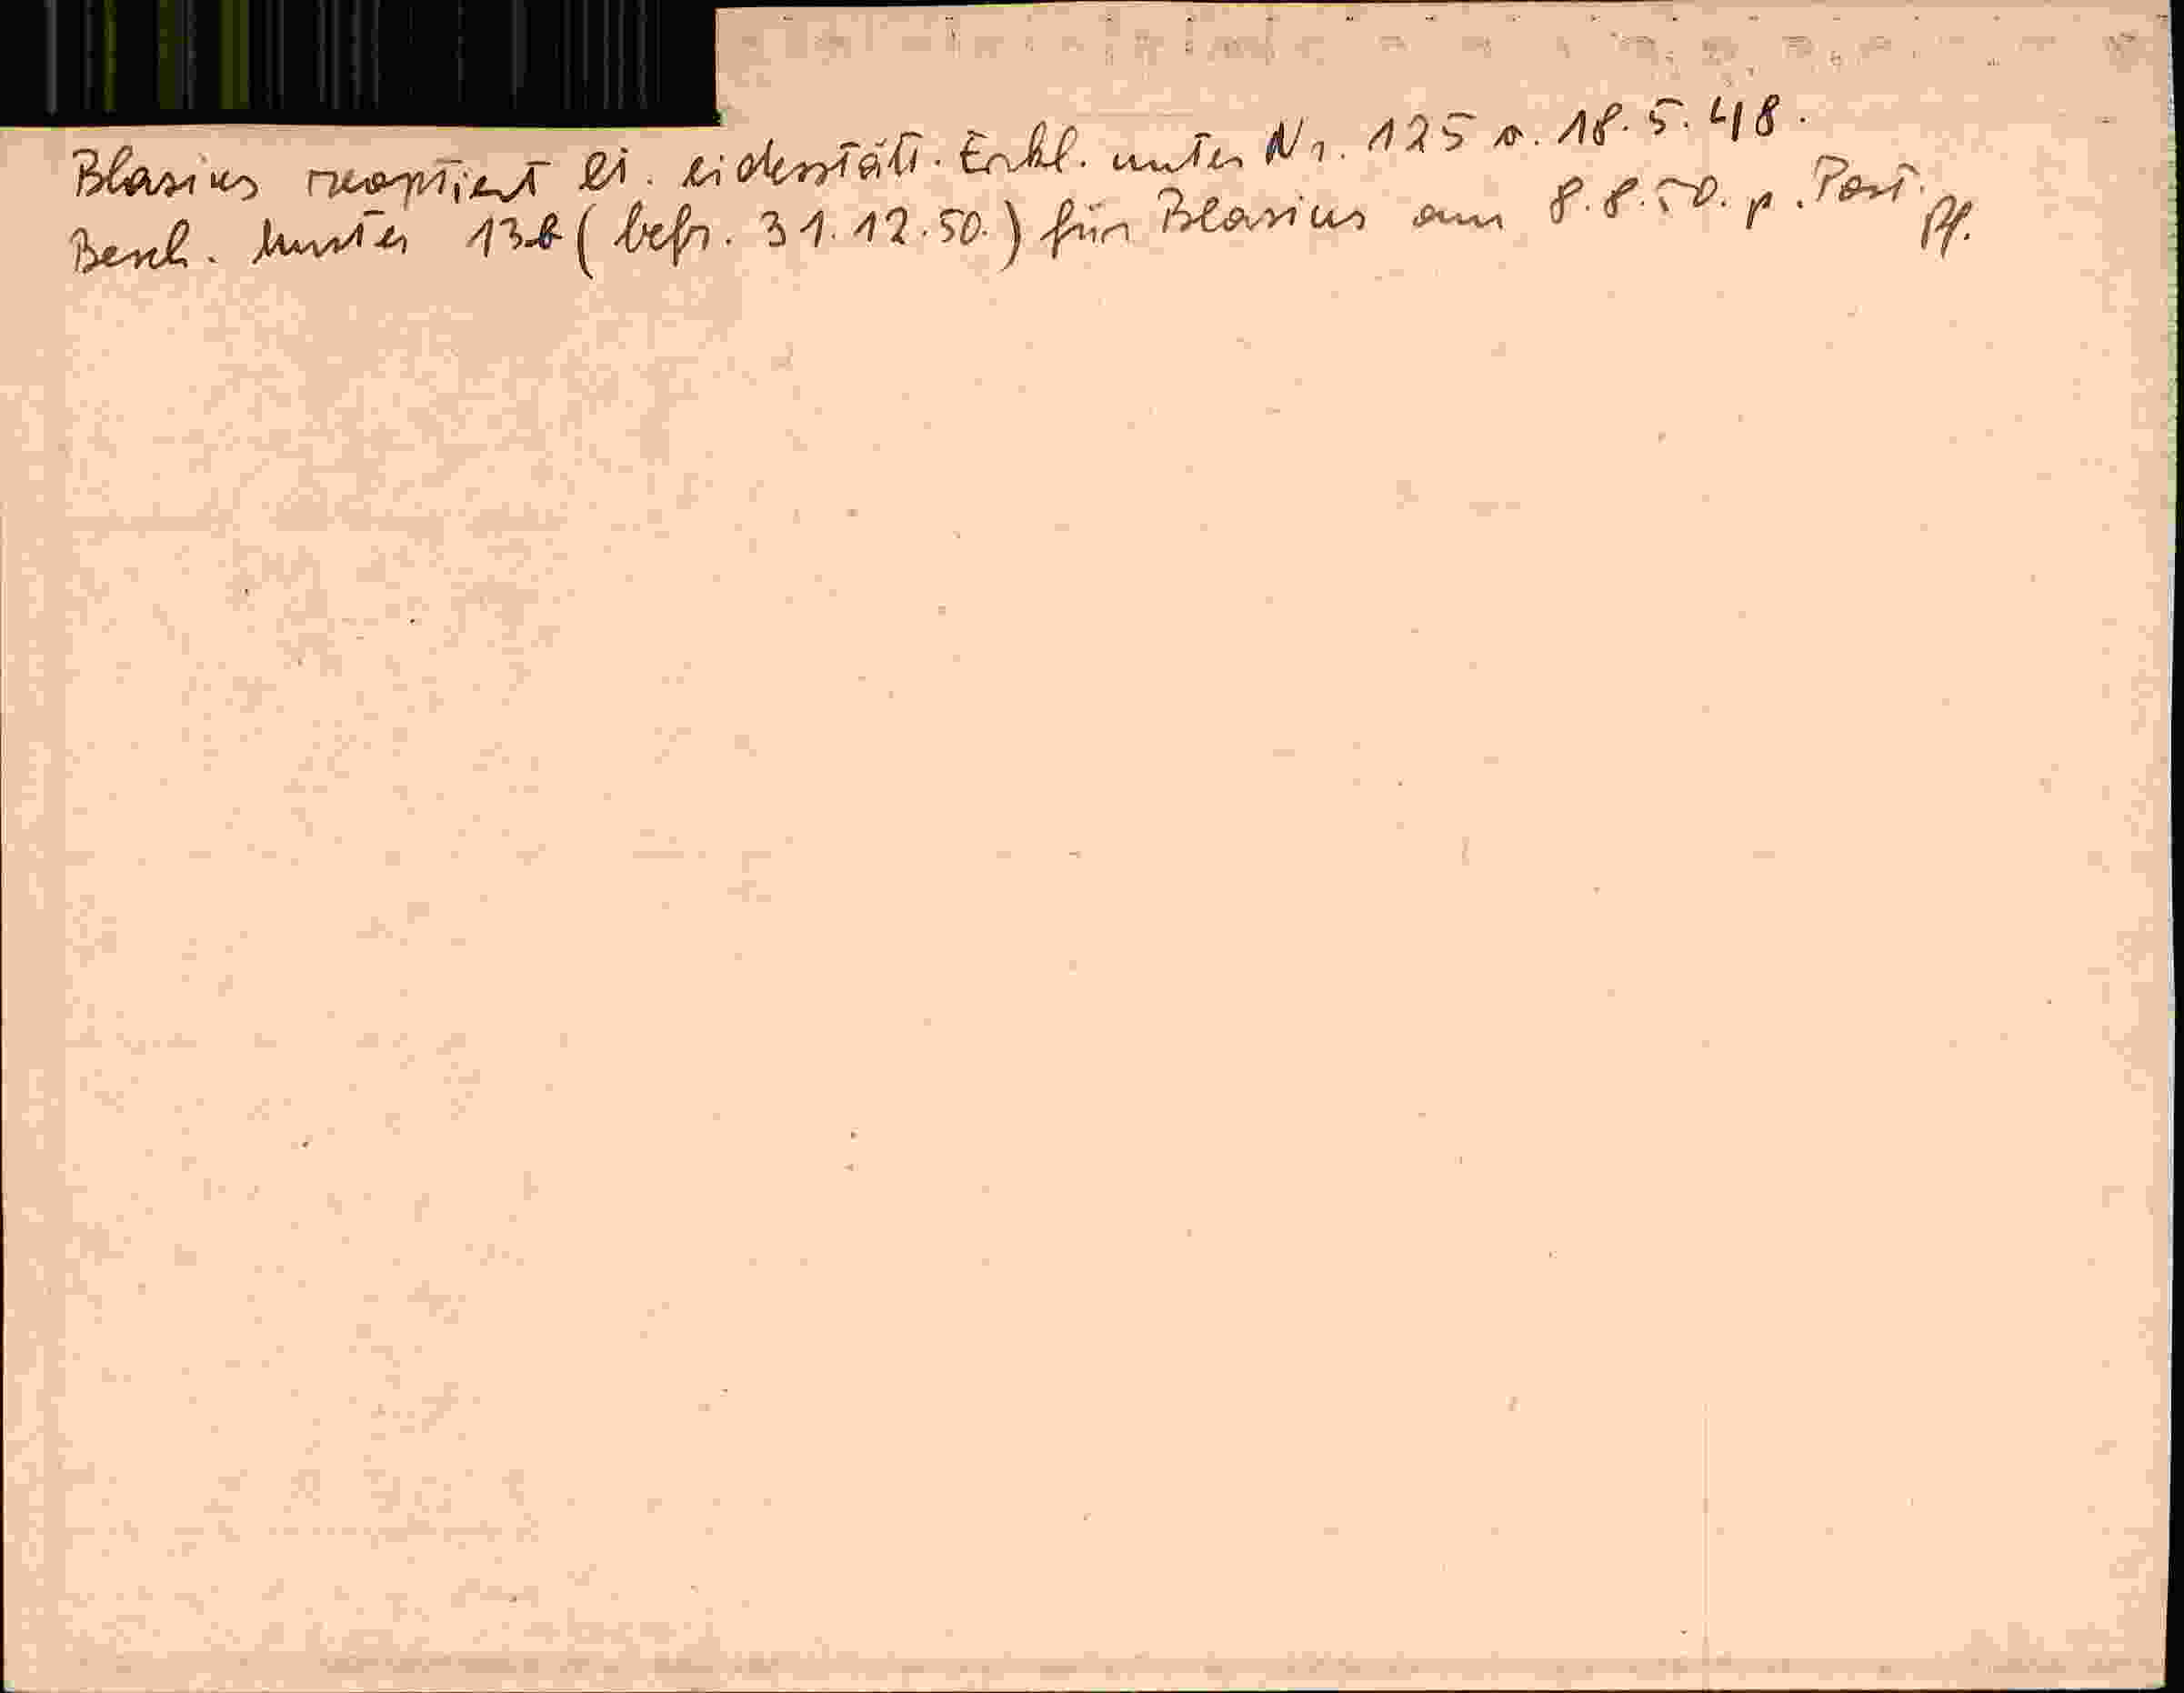 Blasius reoptiert lt. eidesstattl. Erkl. unter Nr. 125 v. 18.5.48.
Besch. Muster 13b (befr. 31.12.50.) für Blasius am 8.8.50. p. Post. Pf.